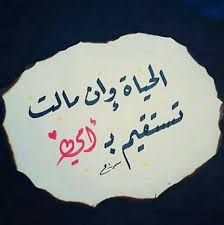 الحياة وإن مالت
تستقيم بـ أمي